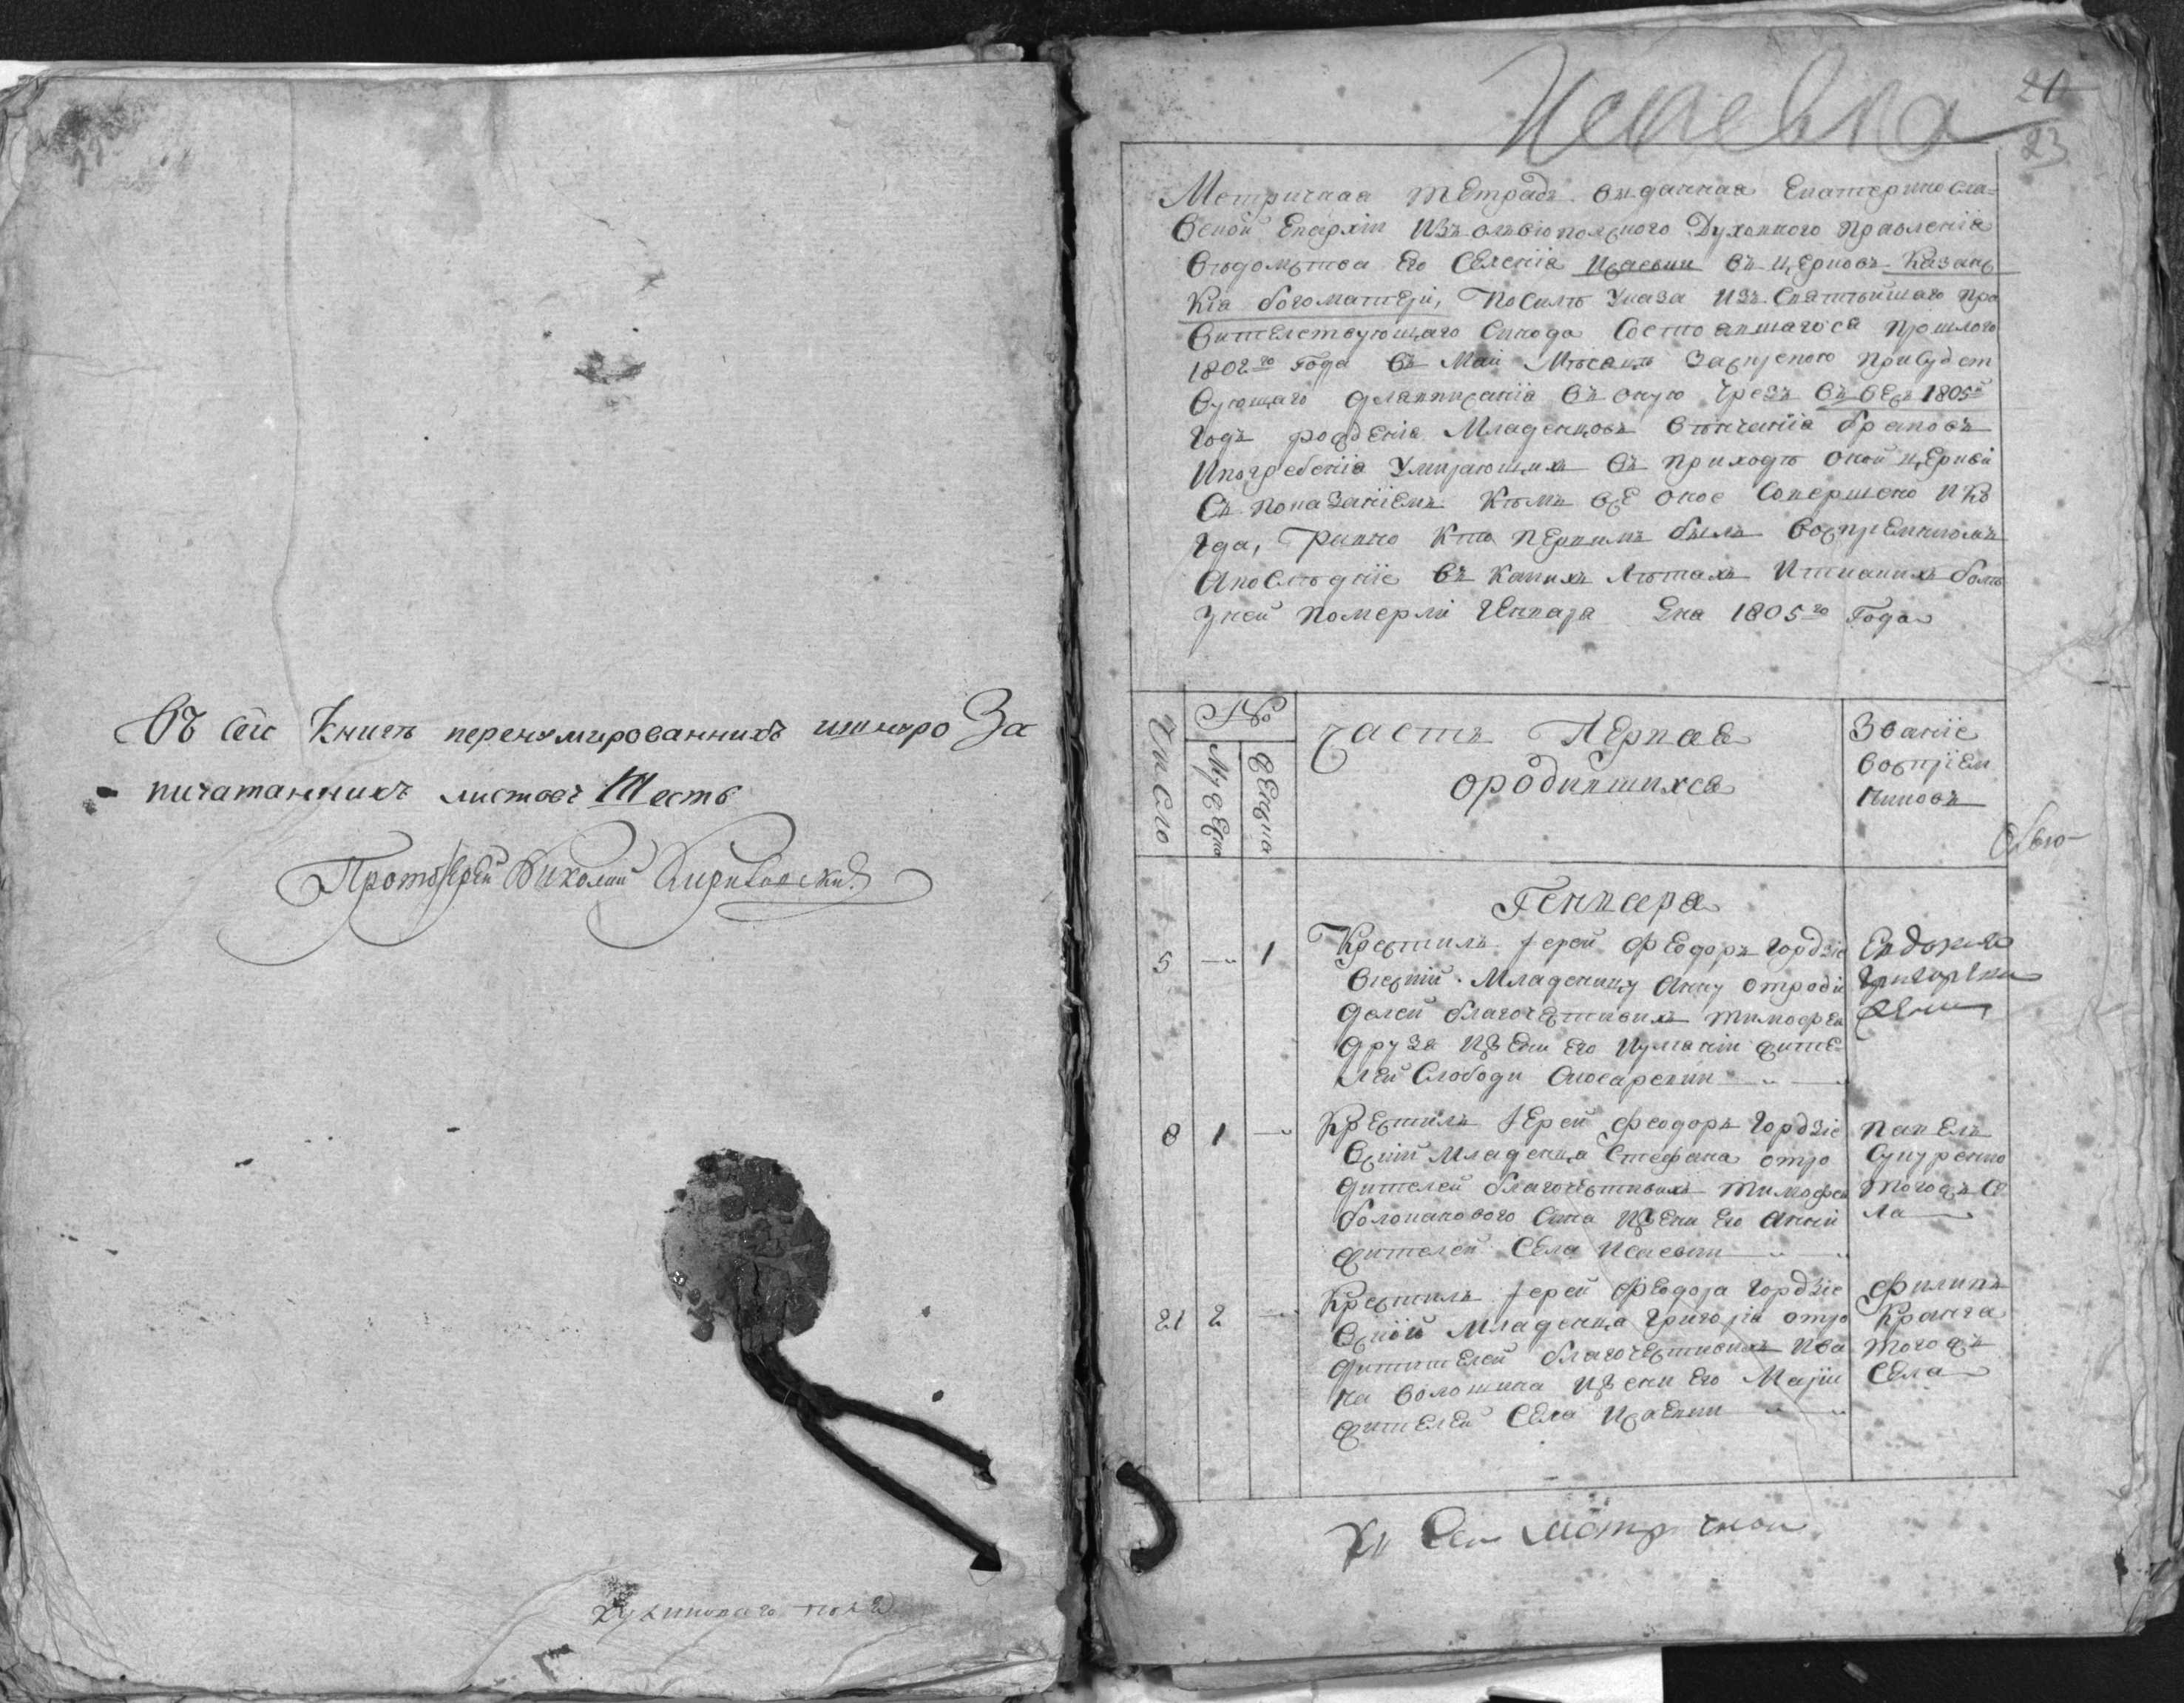 Въ сей Книгѣ перенумированнихъ ишнуро За
пичатаннихъ листовъ Шесть
Протоіерей Николай
Исаевка
21
23
Метричная тетрадь выданная Екатериносла-
вской Епархіи изъ олвіополского Духовного правленія
вѣдомства его Селенія Исаевки въ церковь Казанс
кія богоматери, посилѣ Указа изъ Святѣйшаго пра
вителствующаго Синода Состоявшагося прошлого
1802го Года въ Маи Мѣсяцѣ
вующаго въ оную чрезъ въ весь 1805й
годъ рожденія Младенцовъ вѣнчанія браковъ
Ипогребенія Умирающихъ въ приходѣ оной церкви
Съ показаніемъ Кѣмъ все оное Совершено ико
гда, Равно Кто первимъ былъ воспріемникомъ
Апослѣдніе въ какихъ лѣтахъ Иткакихъ болѣ
зней померли Генваря 1го 1805го Года
Число
№
Мужеско
Женска
Часть Первая
ородившихся
Званіе
воспріем
никовъ
Генваря
5 — 1
Крестилъ Іерей Феодоръ гордзіе
вскій Младеницу Анну отроди
делей благочестивихъ тимофея
друзя ижени его Иуманіи жите-
лей Слободи
Евдокия
Григорієва
8 1 —
Крестилъ Іерей Феодоръ гордзіе
вскій Младенца Стефана отро
дителей благочестивихъ тимофея
болопанового Сина ижени его Анни
жителей Села Исаевки
Павелъ
тогожъ Се
ла
21 2 —
Крестилъ Іерей Феодора гордзіе
вскій Младенца Григорія отро
дитителей благочестивихъ Ива
на волошина ижени его Маріи
жителей Села Исаевки
Филипъ
Кранга
тогожъ
Села
Къ Сей метричной